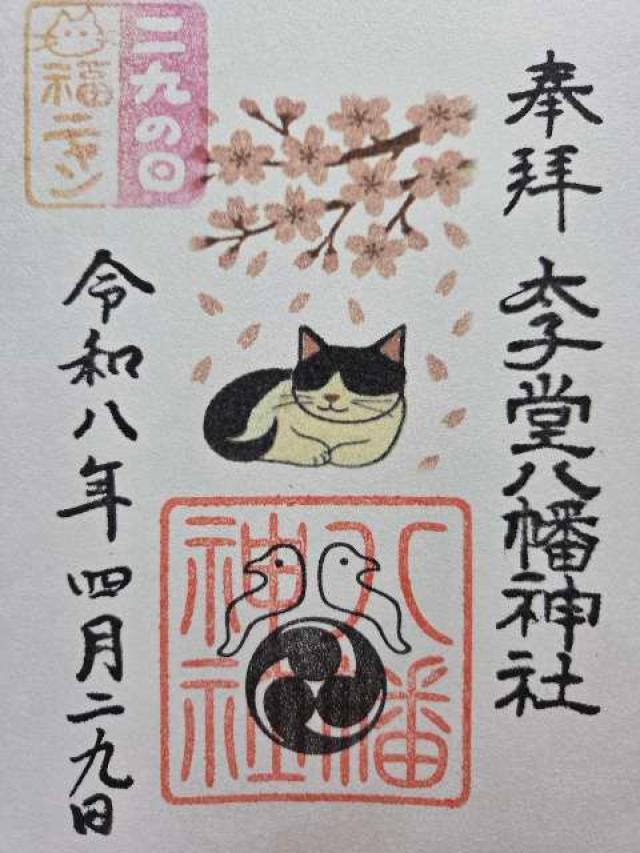 奉拝
太子堂八幡神社
二九の日
福ニャン
八幡
神社
令和八年四月二九日